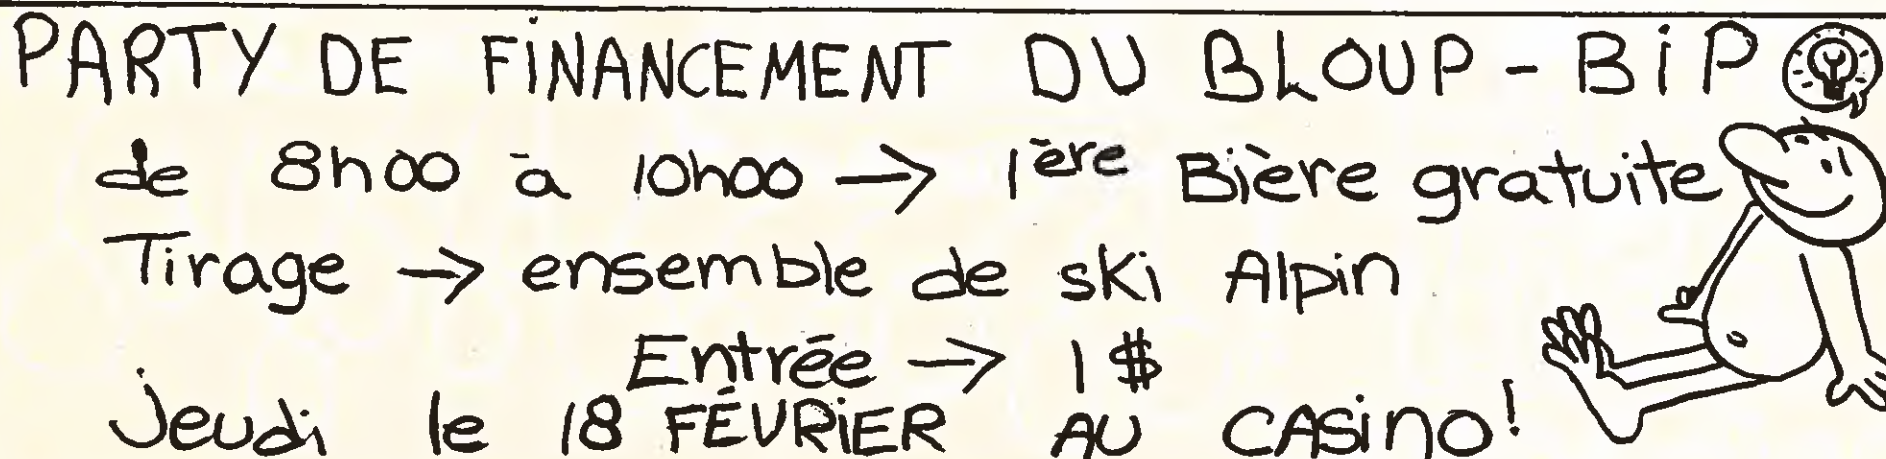 PARTY DE FiNANCEMENT DU BLOUP - BiP
de 8h00 à 10h00 → 1ère Bière gratuite
Tirage → ensemble de ski Alpin
Entrée → 1$
Jeudi le 18 FÉVRiER AU CASino!